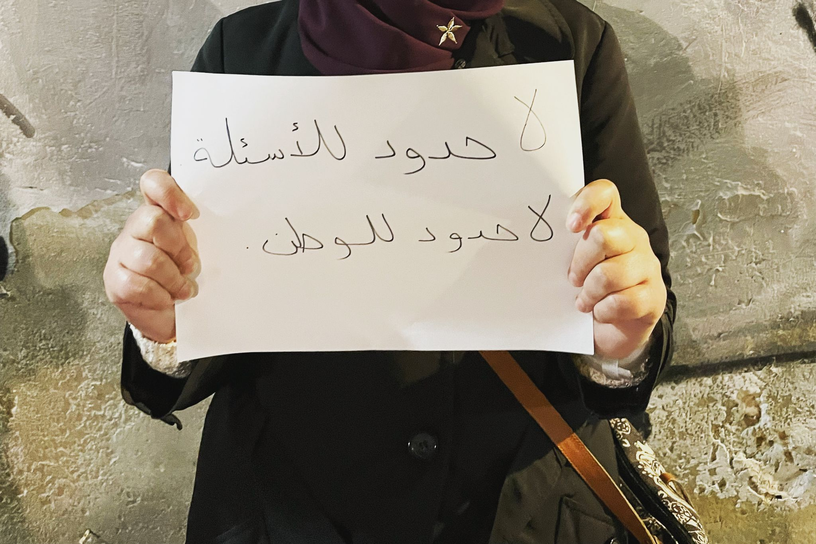 لا حدود للأسئلة.
لا حدود للوطن.